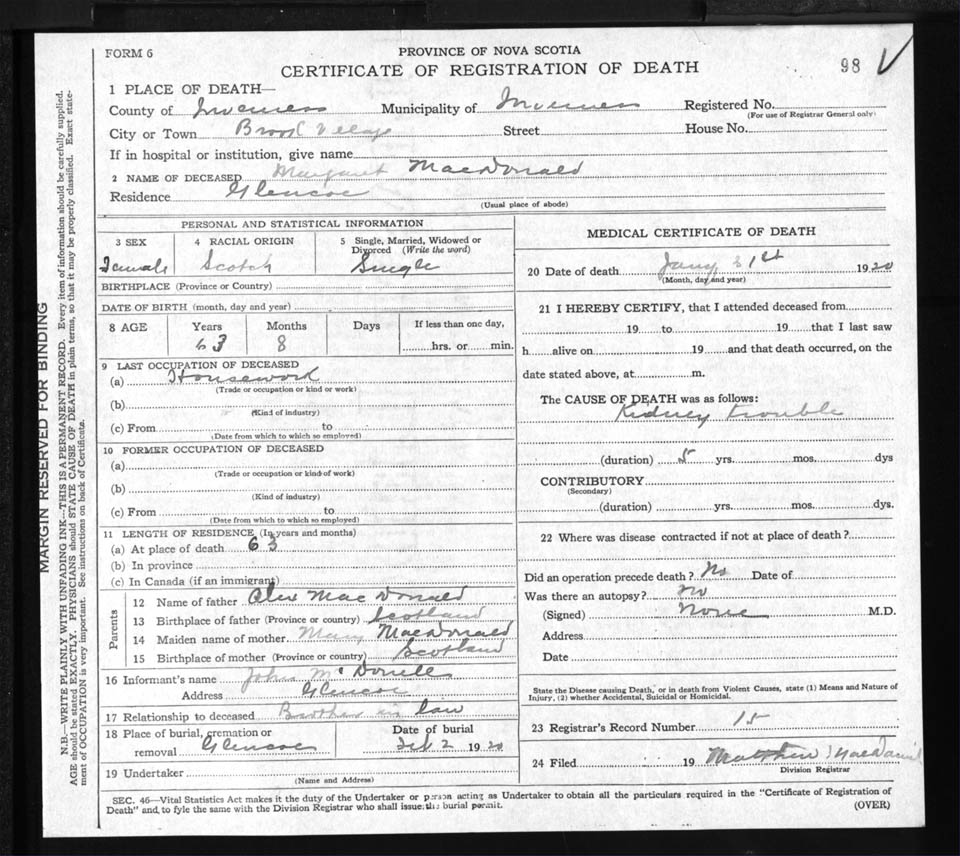 FORM 6
PROVINCE OF NOVA SCOTIA
CERTIFICATE OF REGISTRATION OF DEATH
98
1 PLACE OF DEATH—
County of Inverness Municipality of Inverness Registered No.
(For use of Registrar General only)
City or Town Brook Village Street House No.
If in hospital or institution, give name
2 NAME OF DECEASED Margaret MacDonald
Residence Glencoe
(Usual place of abode)
PERSONAL AND STATISTICAL INFORMATION
3 SEX 4 RACIAL ORIGIN 5 Single, Married, Widowed or Divorced (Write the word)
Female Scotch Single
BIRTHPLACE (Province or Country)
DATE OF BIRTH (month, day and year)
8 AGE Years Months Days If less than one day,
63 8 hrs. or min.
9 LAST OCCUPATION OF DECEASED
(a) Housework
(Trade or occupation or kind or work)
(b)
(Kind of industry)
(c) From to
(Date from which to which so employed)
10 FORMER OCCUPATION OF DECEASED
(a)
(Trade or occupation or kind of work)
(b)
(Kind of industry)
(c) From to
(Date from which to which so employed)
11 LENGTH OF RESIDENCE (In years and months)
(a) At place of death 63
(b) In province
(c) In Canada (if an immigrant)
Parents
12 Name of father Alex MacDonald
13 Birthplace of father (Province or country) Scotland
14 Maiden name of mother Mary MacDonald
15 Birthplace of mother (Province or country) Scotland
16 Informant's name John
Address Glencoe
17 Relationship to deceased Brother in law
18 Place of burial, cremation or removal Glencoe
Date of burial
Feb 2 1920
19 Undertaker
(Name and Address)
MEDICAL CERTIFICATE OF DEATH
20 Date of death Jany 31st 1920
(Month, day and year)
21 I HEREBY CERTIFY, that I attended deceased from
19 to 19 that I last saw
h alive on 19 and that death occurred, on the
date stated above, at m.
The CAUSE OF DEATH was as follows:
Kidney trouble
(duration) 5 yrs. mos. dys
CONTRIBUTORY
(Secondary)
(duration) yrs. mos. dys.
22 Where was disease contracted if not at place of death?
Did an operation precede death? No Date of
Was there an autopsy? no
(Signed) None M.D.
Address
Date
State the Disease causing Death, or in death from Violent Causes, state (1) Means and Nature of
Injury, (2) whether Accidental, Suicidal or Homicidal.
23 Registrar's Record Number 15
24 Filed 19 Matthew
Division Registrar
SEC. 46—Vital Statistics Act makes it the duty of the Undertaker or person acting as Undertaker to obtain all the particulars required in the "Certificate of Registration of
Death" and to fyle the same with the Division Registrar who shall issue the burial permit.
(OVER)
MARGIN RESERVED FOR BINDING
N.B.—WRITE PLAINLY WITH UNFADING INK—THIS IS A PERMANENT RECORD. Every item of information should be carefully supplied.
AGE should be stated EXACTLY. PHYSICIANS should STATE CAUSE OF DEATH in plain terms, so that it may be properly classified. Exact state-
ment of OCCUPATION is very important. See instructions on back of Certificate.